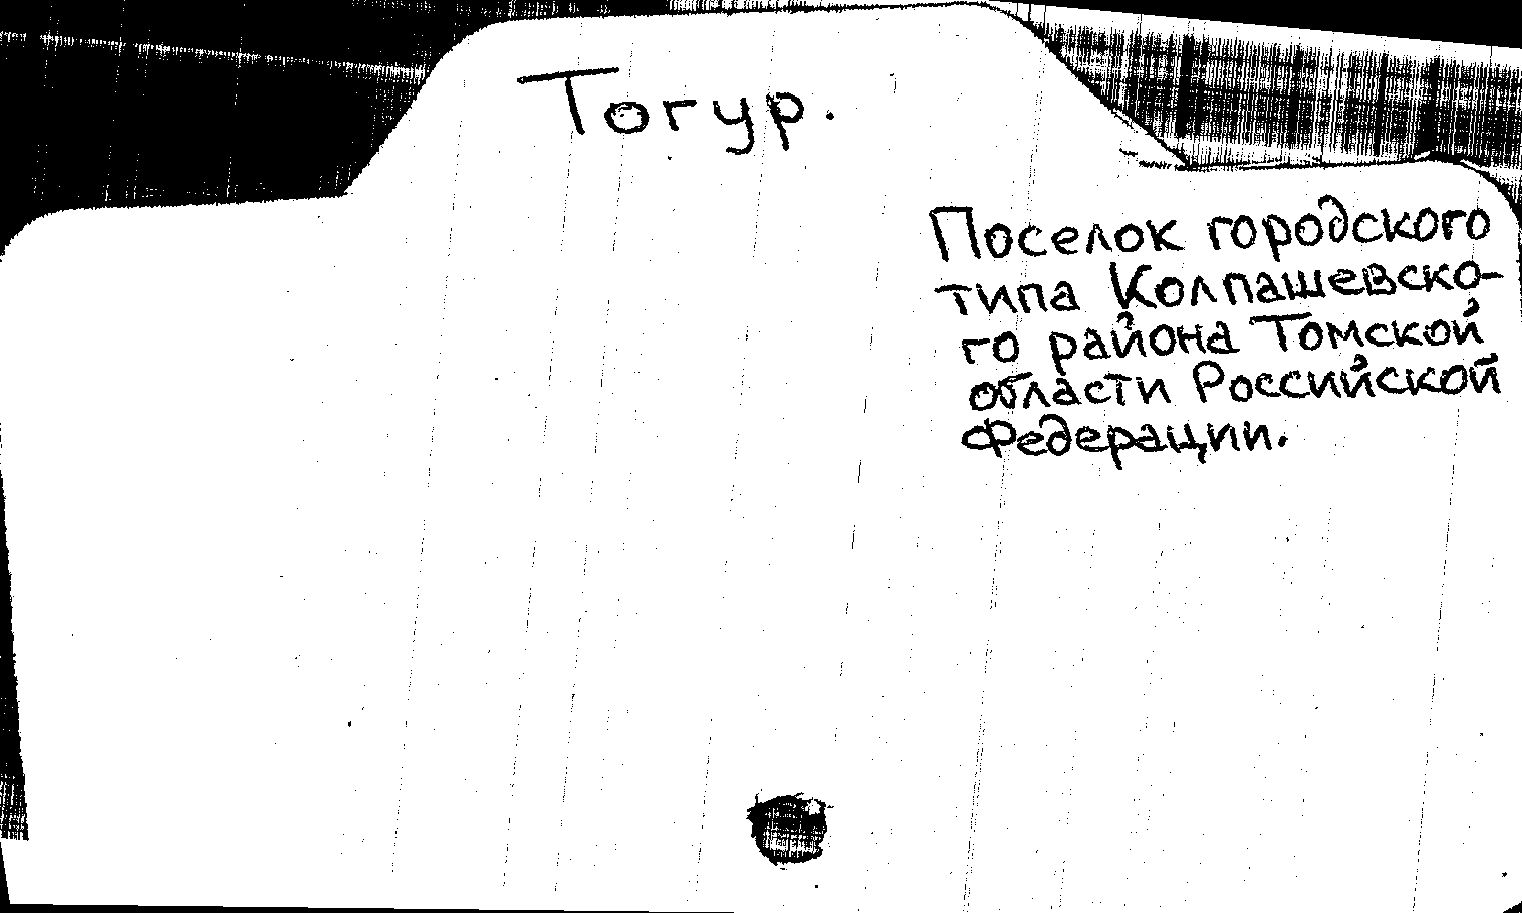 Тогур.
Поселок городского
типа Колпашевско-
го района Томской
области Российской
Федерации.